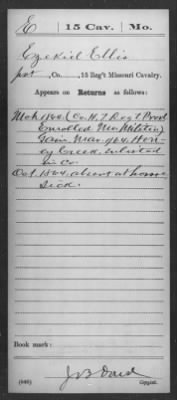 E 15 Cav. Mo.
Ezekiel Ellis
pvt, Co. , 15 Reg't Missouri Cavalry.
Appears on Returns as follows:
Mch 1864 (Co. H. 7 Reg't Provl
Enrolled Mo Militia)
Gain Mar. 1864, Hon-
ey Creek, enlisted
in Co.
Oct 1864, absent at home
sick.
Book mark:
(646)
Copyist.